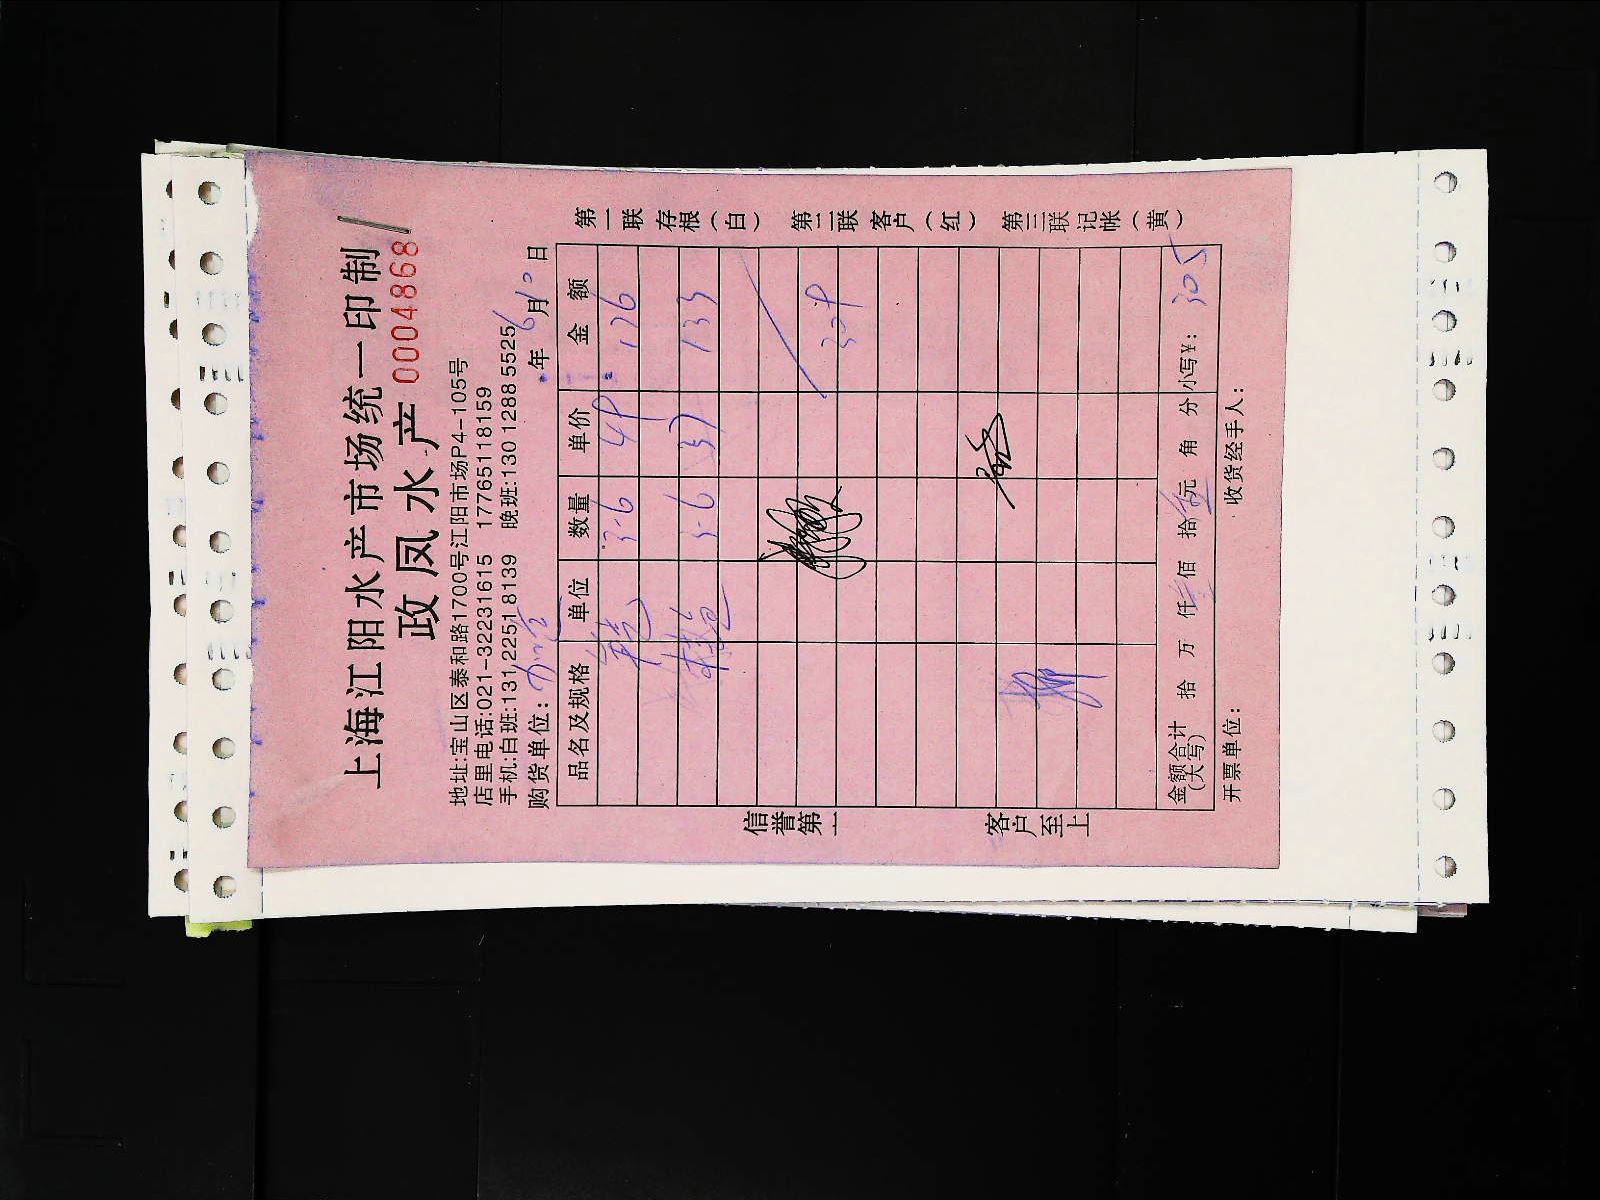 上海江阳水产市场统一印制
政凤水产 0004868
地址:宝山区泰和路1700号江阳市场P4-105号
店里电话:021-32231615 17765118159
手机:白班:131 2251 8139 晚班:130 1288 5525
购货单位: 年 6 月 10 日
品名及规格 单位 数量 单价 金额
3-6 49 176
3-6 37 133
309
金额合计(大写) 拾 万 仟 佰 拾 伍 元 角 分 小写¥: 305
开票单位: 收货经手人:
第一联存根(白) 第二联客户(红) 第三联记帐(黄)
信誉第一 客户至上